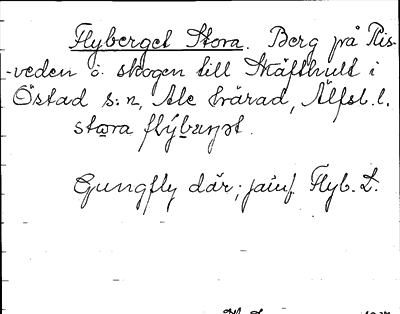 Flyberget Stora. Berg på Ris-
-veden o. skogen till Skäfthult i
Östad s:n, Ale härad, Älfsb. l.
stora
Gungfly där; jämf Flyb. L.